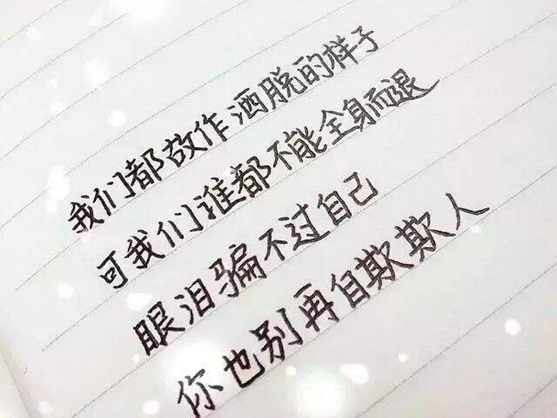 我们都故作洒脱的样子
可我们谁都不能全身而退
眼泪骗不过自己
你也别再自欺欺人